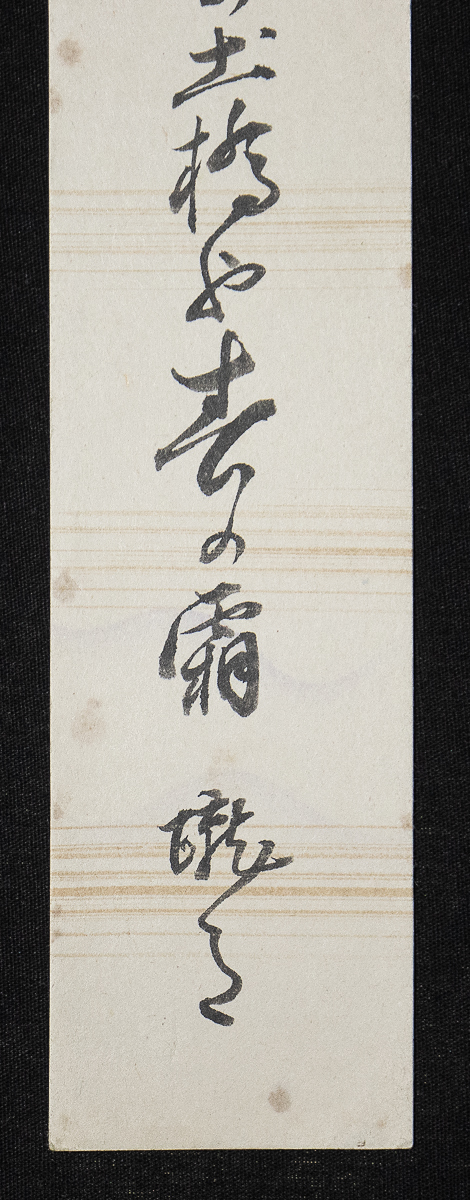 土橋や春の霜